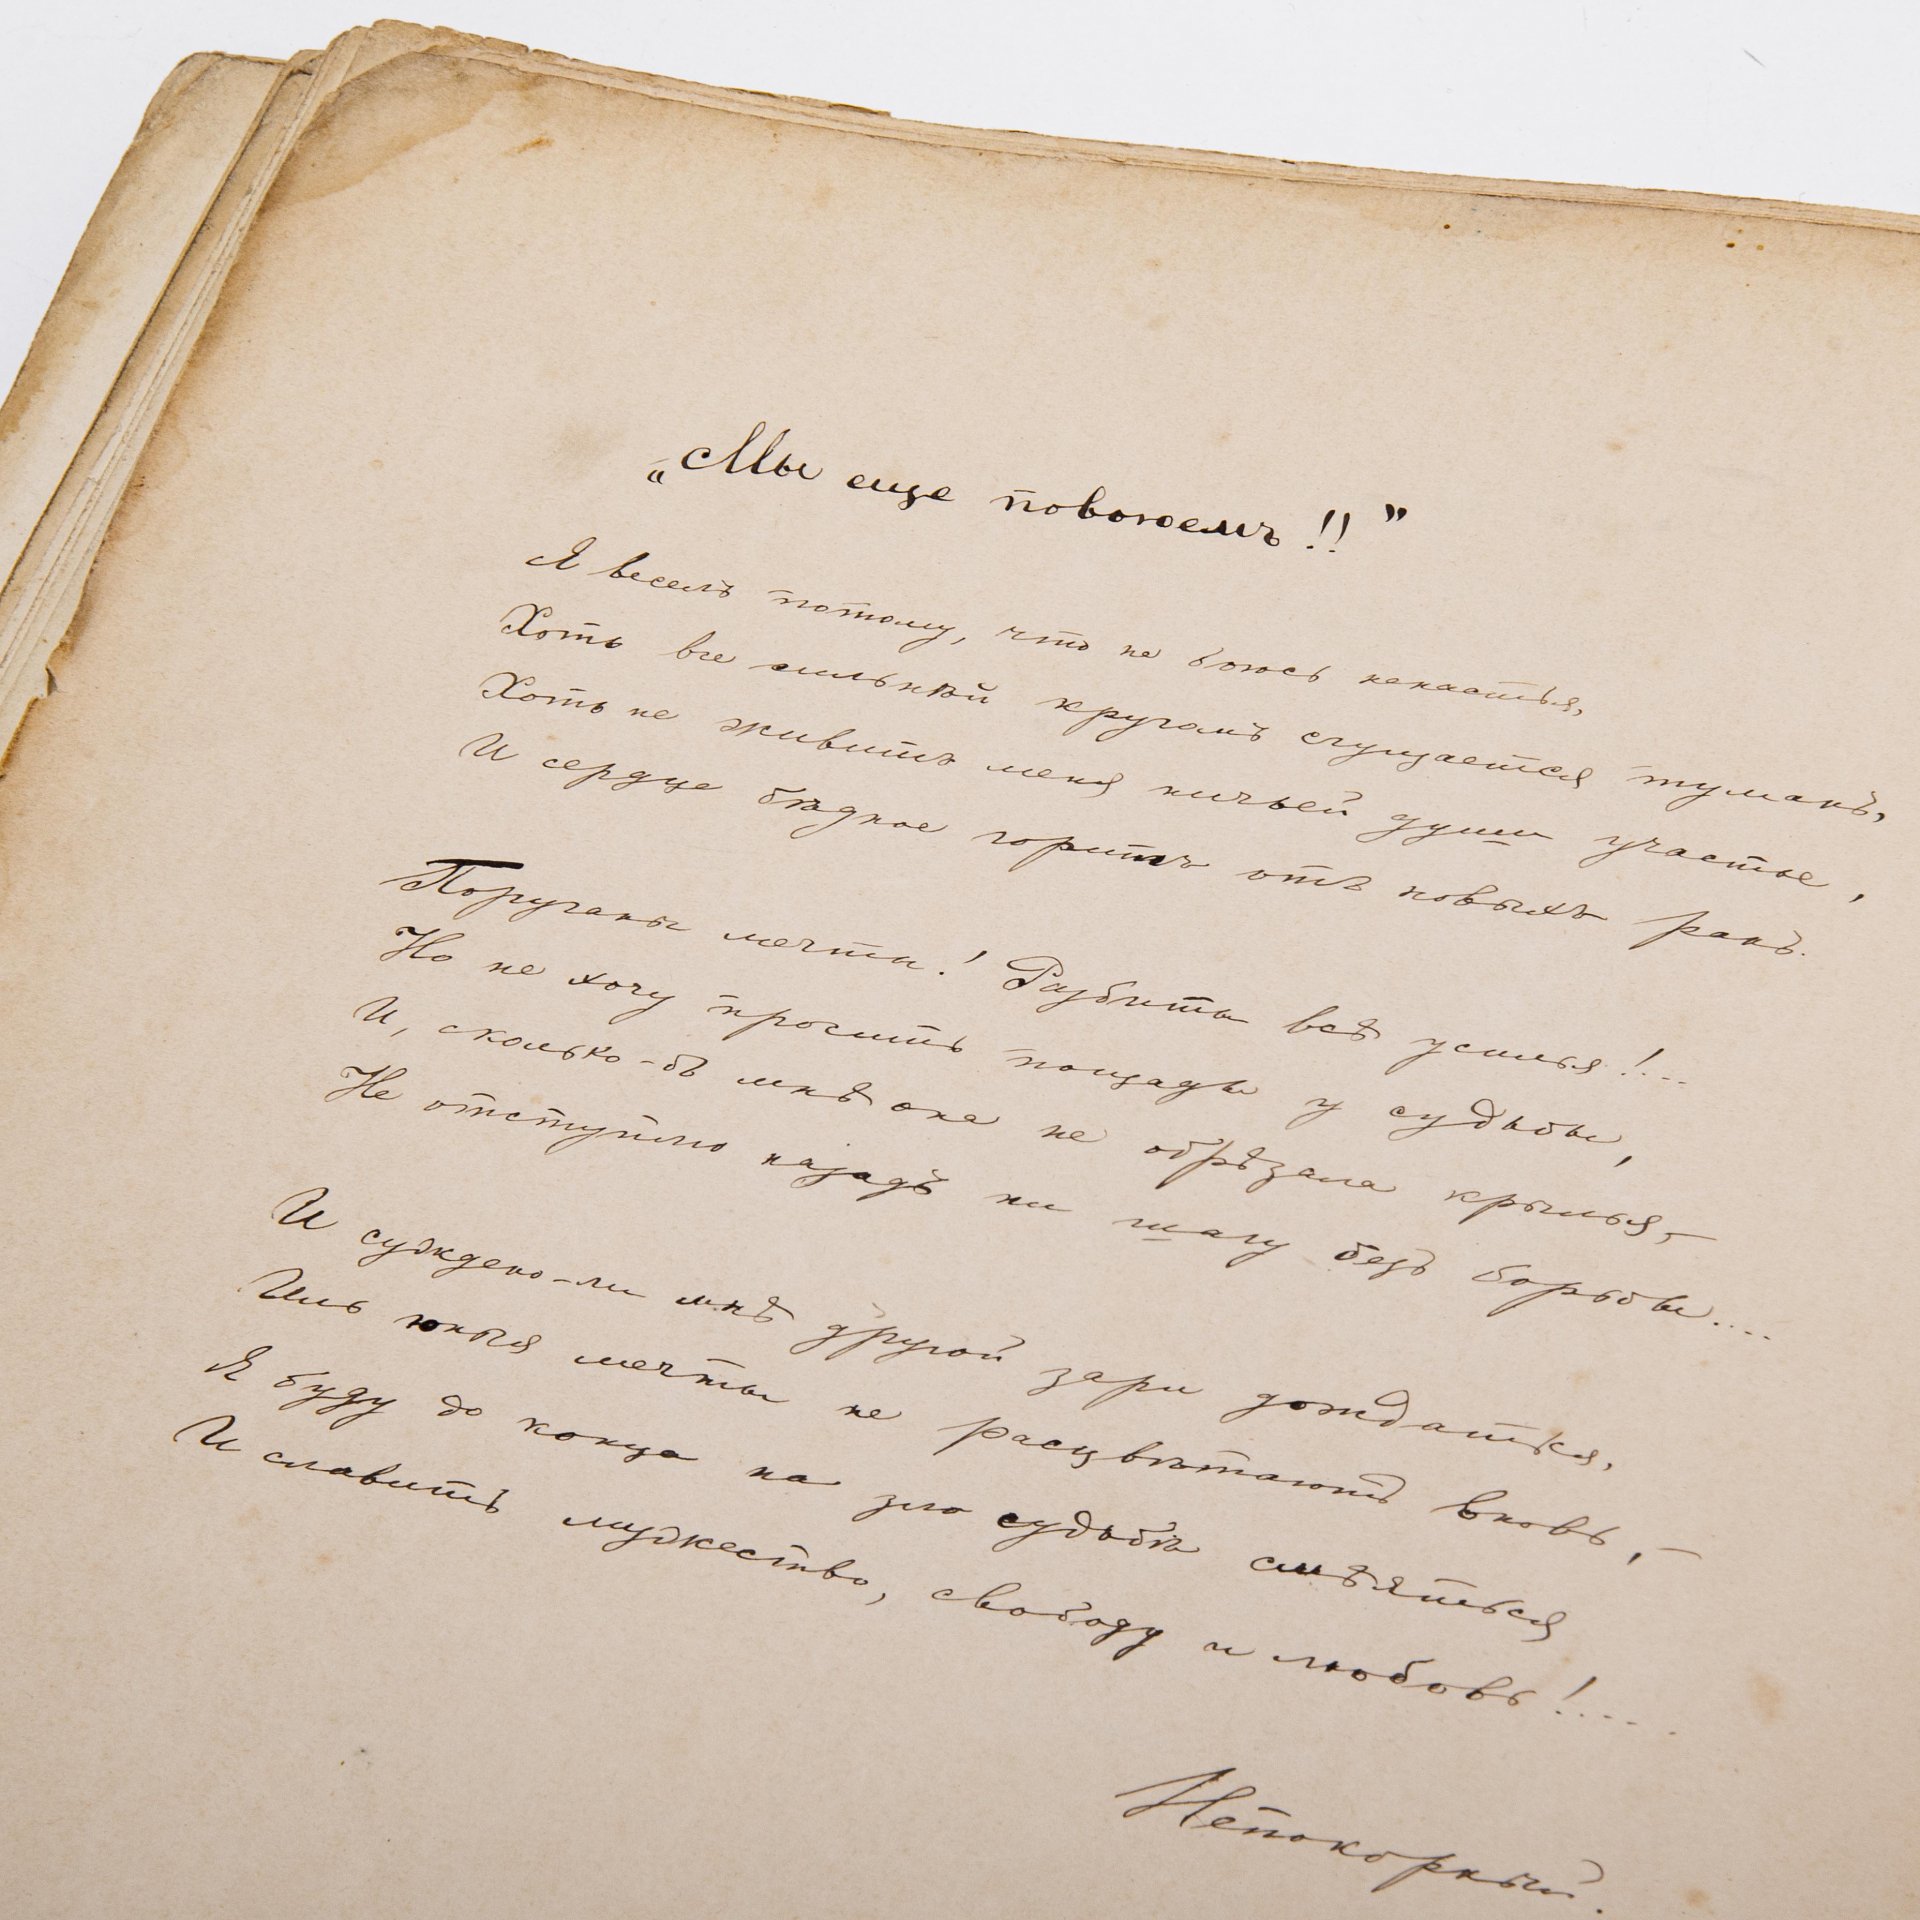 „Мы еще повоюемъ!!"
Я веселъ потому, что не боюсь ненастья,
Хоть все сильнѣй кругомъ сгущается туманъ,
Хоть не живитъ меня ничьей души участье,
И сердце бѣдное горитъ отъ новыхъ ранъ.
Поруганы мечты! Разбиты всѣ усилья!...
Но не хочу просить пощады у судьбы,
И, сколько-бъ мнѣ она не обрѣзала крылья,—
Не отступлю назадъ ни шагу безъ борьбы....
И суждено-ли мнѣ другой зари дождаться,
Иль юныя мечты не расцвѣтаютъ вновь,—
Я буду до конца на зло судьбѣ смѣяться
И славить мужество, свободу и любовь!.....
Непокорный.